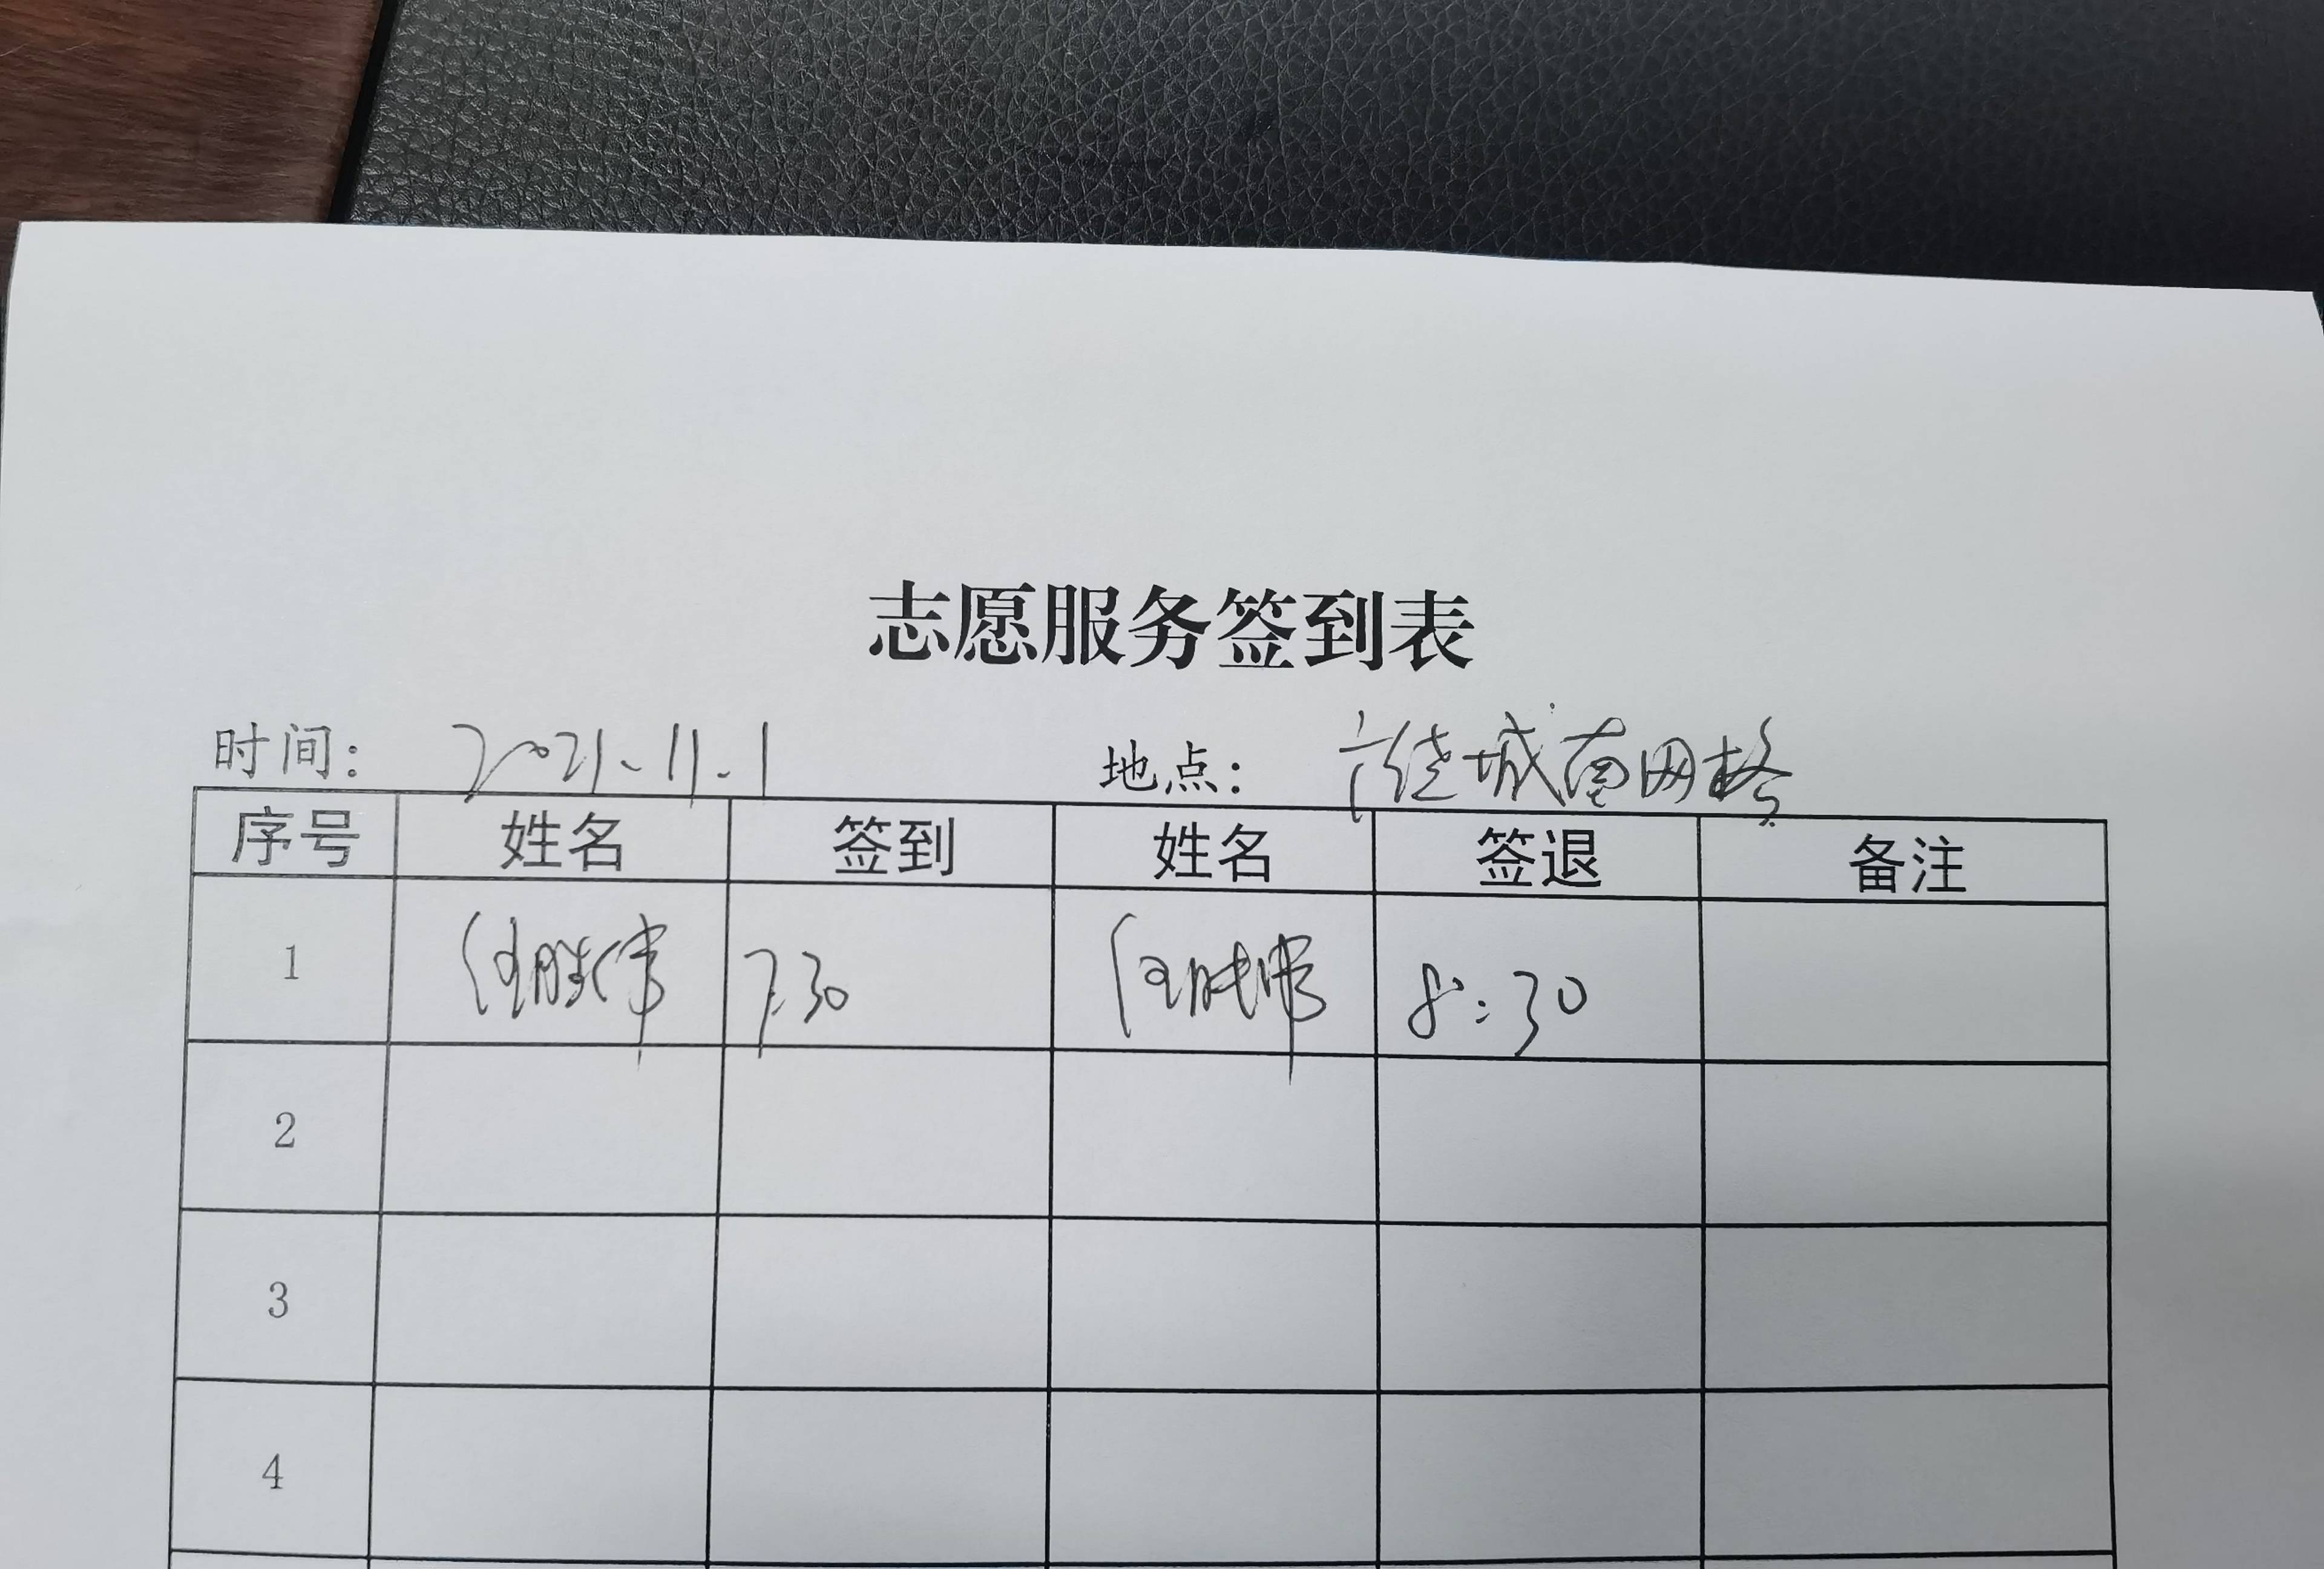 志愿服务签到表
时间: 2021.11.1 地点: 城南网格
序号 姓名 签到 姓名 签退 备注
1 任胜伟 7:30 任胜伟 8:30
2
3
4